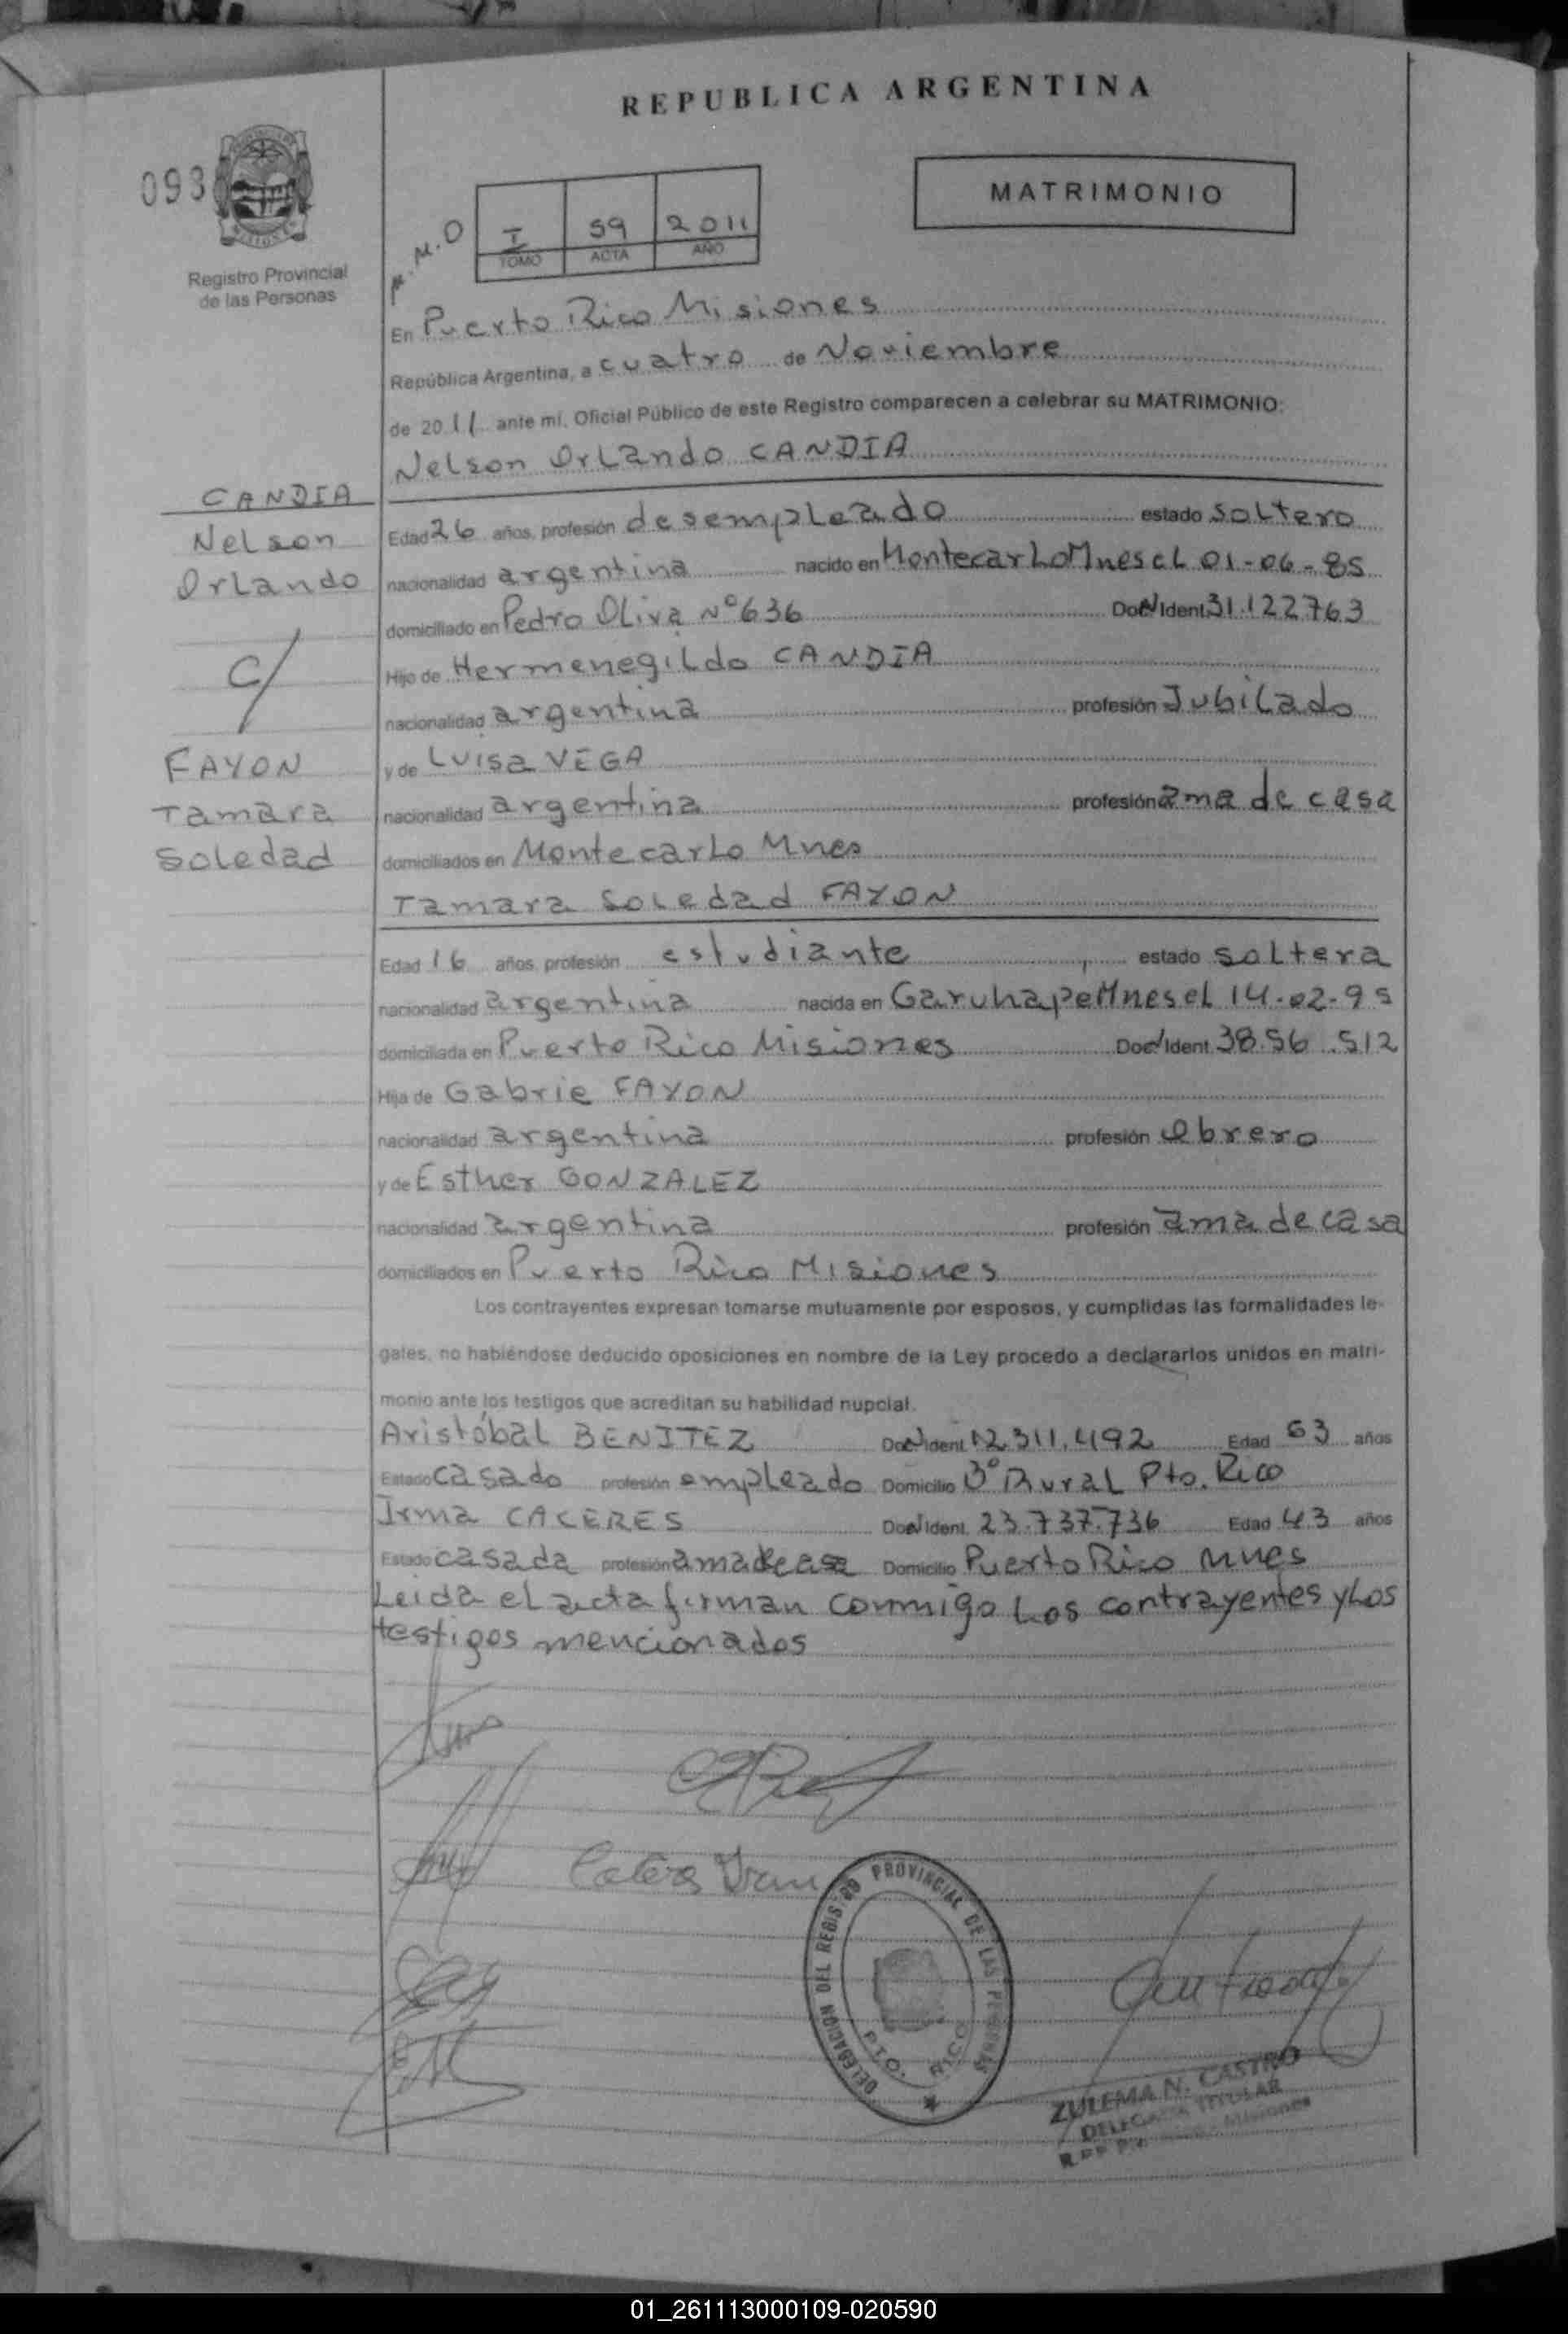 REPUBLICA ARGENTINA
093
MATRIMONIO
M.O
I 59 2011
TOMO ACTA AÑO
Registro Provincial
de las Personas
En Puerto Rico Misiones
República Argentina, a cuatro de Noviembre
de 2011 ante mí, Oficial Público de este Registro comparecen a celebrar su MATRIMONIO:
Nelson Orlando CANDIA
CANDIA
Nelson
Orlando
C/
FAYON
Tamara
Soledad
Edad 26 años, profesión desempleado estado soltero
nacionalidad argentina nacido en Montecarlo Mnes el 01-06-85
domiciliado en Pedro Oliva Nº 636 Doc Ident 31.122763
Hijo de Hermenegildo CANDIA
nacionalidad argentina profesión Jubilado
y de Luisa VEGA
nacionalidad argentina profesión ama de casa
domiciliados en Montecarlo Mnes
Tamara Soledad FAYON
Edad 16 años, profesión estudiante estado soltera
nacionalidad argentina nacida en Garuhape Mnes el 14-02-95
domiciliada en Puerto Rico Misiones Doc Ident. 38.56 .512
Hija de Gabrie FAYON
nacionalidad argentina profesión obrero
y de Esther GONZALEZ
nacionalidad argentina profesión ama de casa
domiciliados en Puerto Rico Misiones
Los contrayentes expresan tomarse mutuamente por esposos, y cumplidas las formalidades le-
gales, no habiéndose deducido oposiciones en nombre de la Ley procedo a declararlos unidos en matri-
monio ante los testigos que acreditan su habilidad nupcial.
Aristóbal BENITEZ Doc Ident 12.311.492 Edad 63 años
Estado casado profesión empleado Domicilio Bº Rural Pto. Rico
Irma CACERES Doc Ident. 23.737.736 Edad 43 años
Estado casada profesión ama de casa Domicilio Puerto Rico Mnes
Leida el acta firman conmigo los contrayentes y los
testigos mencionados
DELEGACION DEL REGISTRO PROVINCIAL DE LAS PERSONAS
PTO. RICO
ZULEMA N. CASTRO
DELEGADA TITULAR
Misiones
01_261113000109-020590